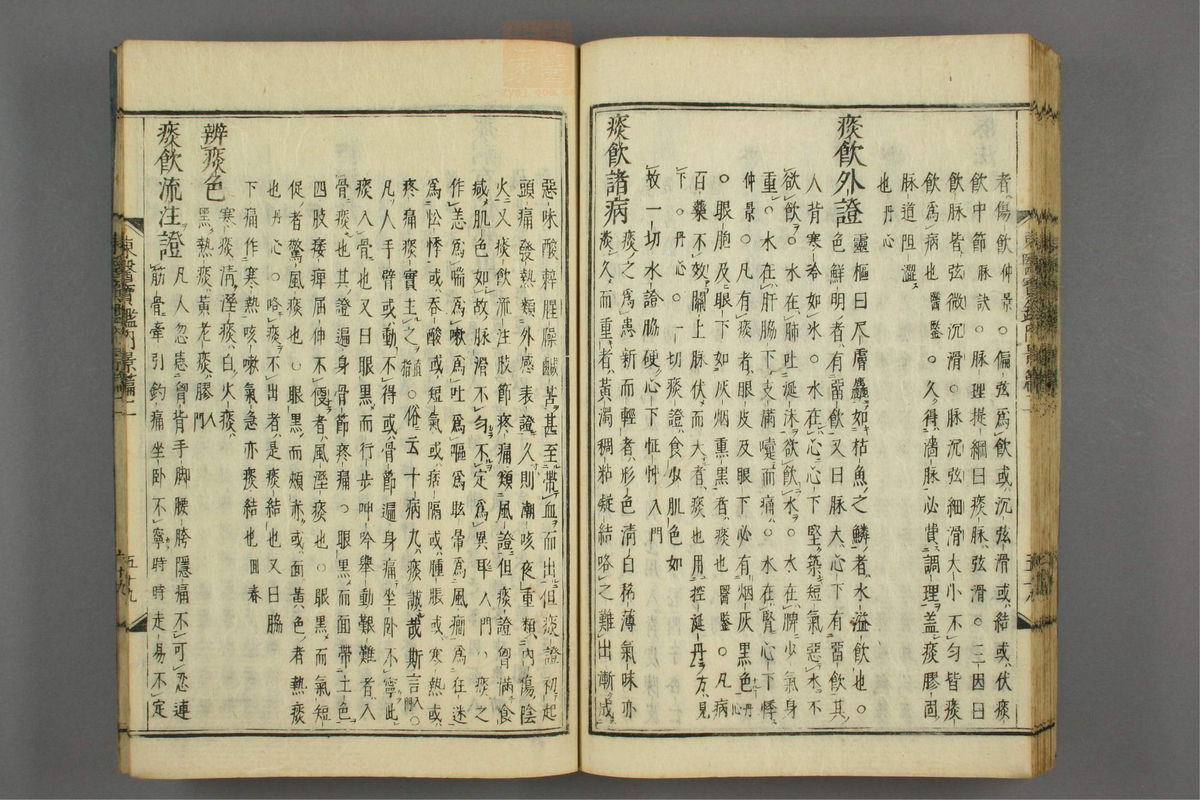 者傷飲仲景。偏弦爲飲或沉弦滑或結或伏痰
飲中節脉訣。脉理提綱曰痰脉弦滑。三因曰
飲脉皆弦微沉滑。脉沉弦細滑大小不勻皆痰
飲爲病也醫鑒。久得澁脉必費調理盖痰膠固
脉道阻澀
也丹心
痰飲外證
靈樞曰尺膚麤如枯魚之鱗者水溢飲也。
色鮮明者有畱飲又曰脉大心下有畱飲其
人背寒冷如氷。水在心心下堅築短氣惡水不
欲飲。水在肺吐涎沫欲飲水。水在脾少氣身
重。水在肝脇下支滿嚔而痛。水在腎心下悸
仲景。凡有痰者眼皮及眼下必有烟灰黑色丹心
。眼胞及眼下如灰烟熏黑者痰也醫鑒。凡病
百藥不效關上脉伏而大者痰也用控涎丹方見
下。丹心。一切痰證食少肌色如
故一切水證脇硬心下怔忡入門
痰飲諸病
痰之爲患新而輕者形色淸白稀薄氣味亦
淡久而重者黃濁稠粘凝結咯之難出漸成
惡味酸辣腥臊鹹苦甚至帶血而出但痰證初起
頭痛發熱類外感表證久則潮咳夜重類內傷陰
火又痰飲流注肢節疼痛類風證但痰證胷滿食
减肌色如故脉滑不勻不定爲異耳入門。痰之
作恙爲喘爲嗽爲吐爲嘔爲眩暈爲風癎爲狂迷
爲忪悸或吞酸或短氣或痞隔或腫脹或寒熱或
疼痛痰實主之直指。俗云十病九痰誠哉斯言入門。
凡人手臂或動不得或骨節遍身痛坐卧不寧此
痰入骨也又曰眼黑而行步呻吟擧動艱難者入
骨痰也其證遍身骨節疼痛。眼黑而面帶土色
四肢痿痺屈伸不便者風溼痰也。眼黑而氣短
促者驚風痰也。眼黑而頰赤或面黃色者熱痰
也丹心。咯痰不出者是痰結也又曰脇
下痛作寒熱咳嗽氣急亦痰結也回春
辨痰色
寒痰淸溼痰白火痰
黑熱痰黃老痰膠入門
痰飲流注證
凡人忽患胷背手脚腰胯隱痛不可忍連
筋骨牽引釣痛坐卧不寧時時走易不定
東醫寶鑑內景篇二
五十九